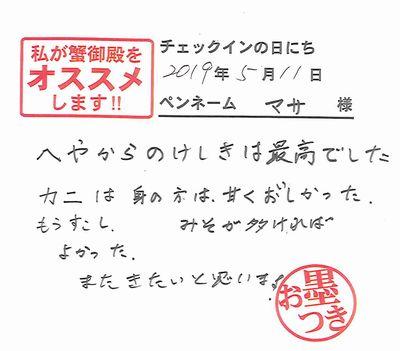 私が蟹御殿を
オススメ
します!!
チェックインの日にち
2019年5月11日
ペンネーム マサ 様
へやからのけしきは最高でした
カニは 身の方は、甘くおしかった.
もうすこし、 みそが多ければ
よかった.
またきたいと思います!
お墨
つき